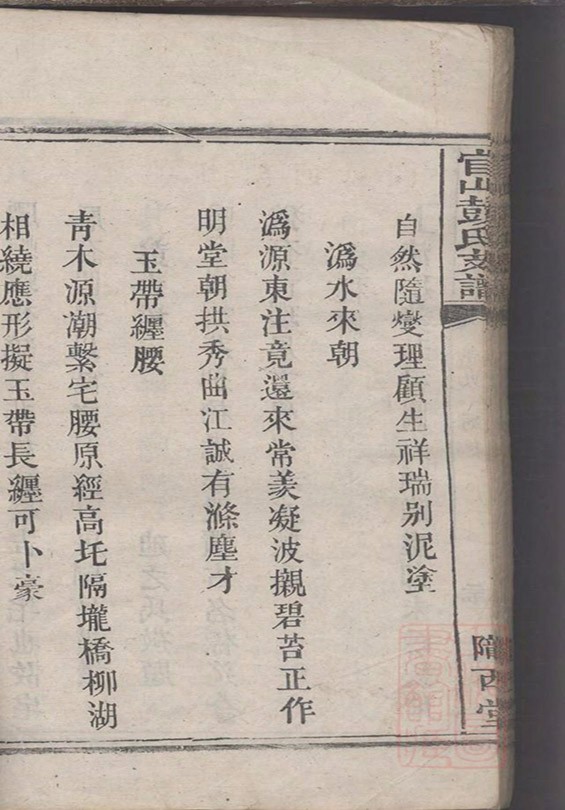 官山彭氏支譜
隴西堂
自然隨燮理顧生祥瑞别泥塗
溈水來朝
溈源東注竟還來常羨凝波襯碧苔正作
明堂朝拱秀曲江誠有滌塵才
玉帶纏腰
青木源潮繫宅腰原經高圫隔壠橋柳湖
相繞應形擬玉帶長纏可卜豪